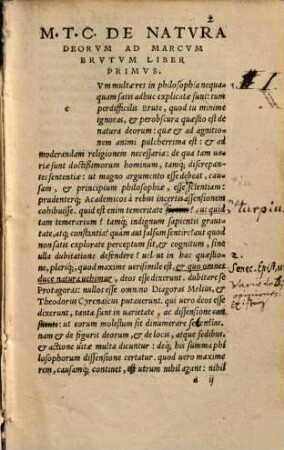 2
M. T. C. DE NATVRA
DEORVM AD MARCVM
BRVTVM LIBER
PRIMVS.
c
Vm multæ res in philosophia nequa-
quam satis adhuc explicatæ sunt: tum
perdifficilis Brute, quod tu minime
ignoras, et perobscura quæstio est de
natura deorum: quæ et ad agnitio-
nem animi pulcherrima est: et ad
moderandam religionem necessaria: de qua tam ua-
riæ sunt doctissimorum hominum, tamq; discrepan-
tes sententiæ: ut magno argumento esse debeat, cau-
sam, et principium philosophiæ, esse scientiam:
prudenterq; Academicos à rebus incertis assensionem
cohibuisse. quid est enim temeritate aut quid
tam temerarium? tamq; indignum sapientis grauitate
atq; constantia? quàm aut falsum sentire? aut quod
non satis explorate perceptum sit, et cognitum, sine
ulla dubitatione defendere? uel ut in hac quæstio-
ne, pleriq;, quod maxime uerisimile est, et quo omnes
duce natura uehimur, deos esse dixerunt, dubitare se
Protagoras: nullos esse omnino Diagoras Melius, et
Theodorus Cyrenaicus putauerunt. qui uero deos esse
dixerunt, tanta sunt in uarietate, ac dissensione
ut eorum molestum sit dinumerare sententias,
nam et de figuris deorum, et de locis, atque sedibus,
et actione uitæ multa dicuntur: deq; his summa phi
losophorum dissensione certatur. quod uero maxime
rem, causamq; continet, est utrum nihil agant: nihil
a ij
turpiu
Senec. Epist.